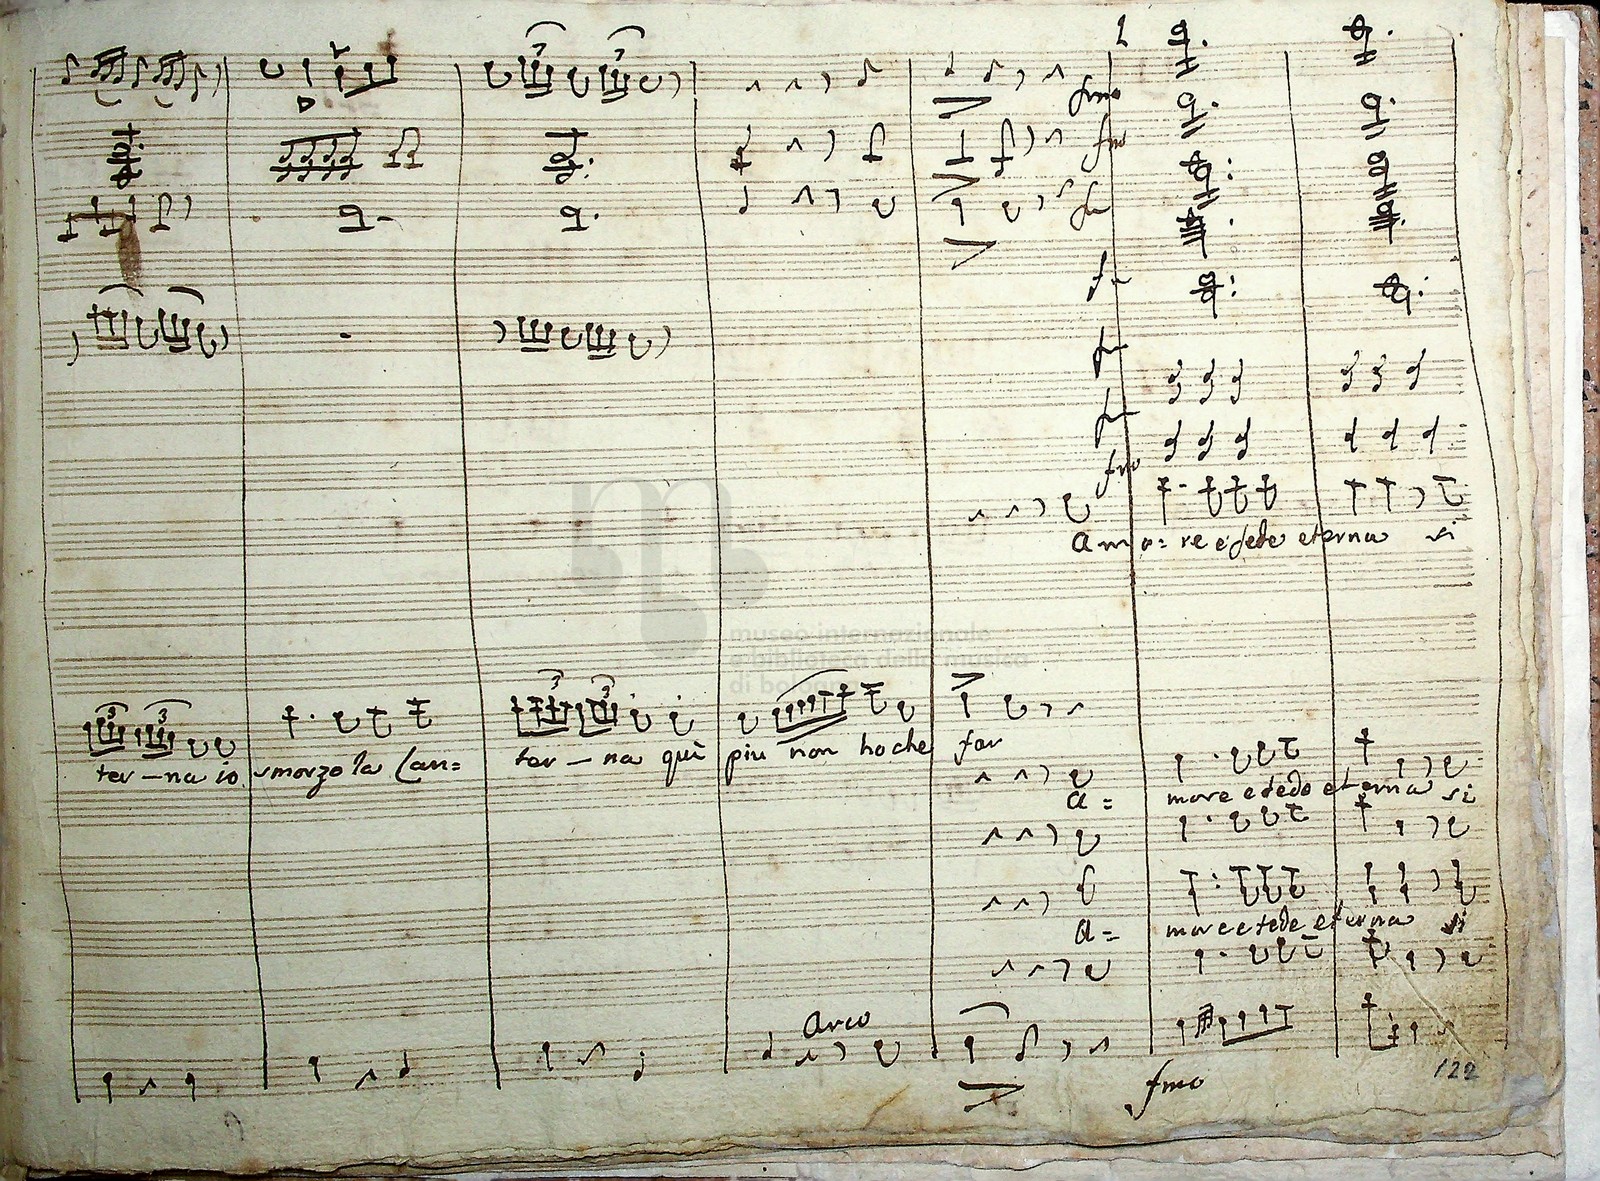 fmo
fmo
fmo
Amo=re e fede eterna si
museo internazionale
e biblioteca della musica
di bologna
ter-na io smorzo la lan= ter-na quì piu non ho che far
a= more e fede eterna si
a= more e fede eterna si
Arco
fmo
122